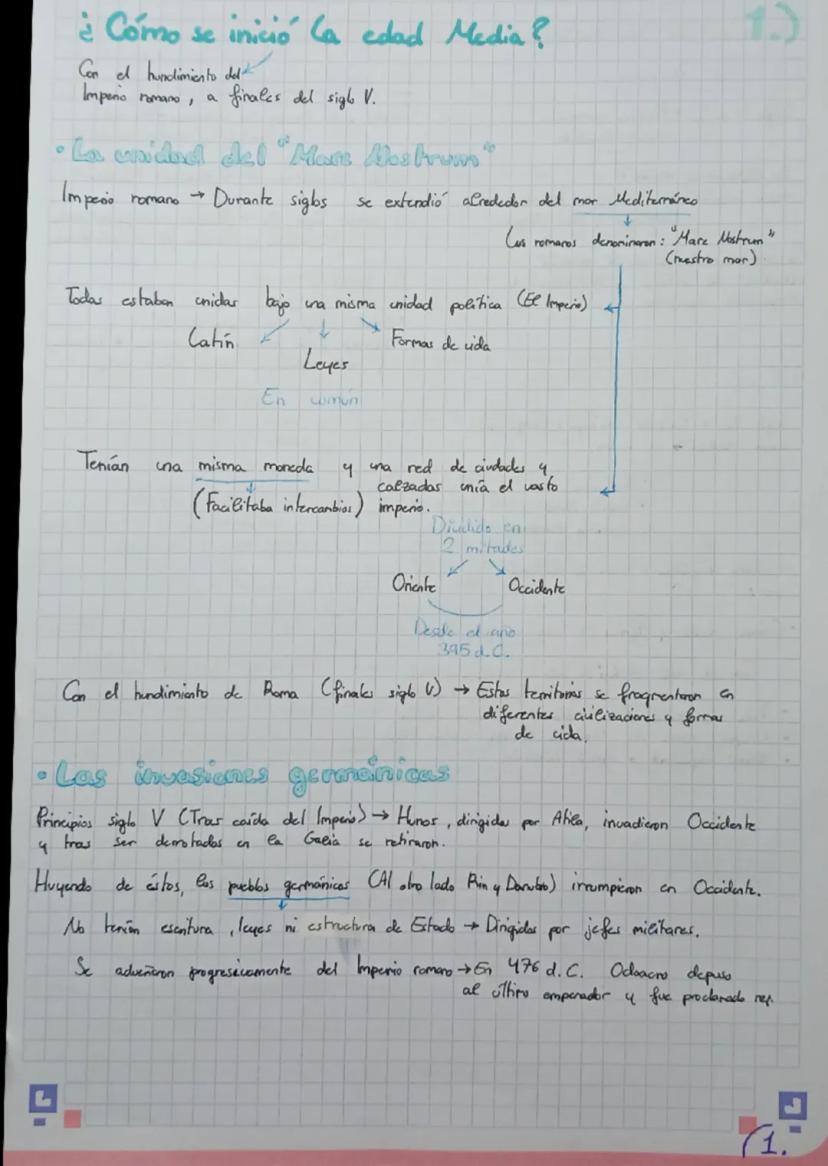 1.)
¿Cómo se inició la edad Media?
Con el hundimiento del
Imperio romano, a finales del siglo V.
• La unidad del "Mare Nostrum"
Imperio romano → Durante siglos se extendió alrededor del mar Mediterráneo
Los romanos denominaron: "Mare Nostrum"
(nuestro mar)
Todas estaban unidas bajo una misma unidad política (El Imperio)
Latín Leyes Formas de vida
En común
Tenían una misma moneda y una red de ciudades y
calzadas unía el vasto
(Facilitaba intercambios) imperio.
Dividido en
2 mitades
Oriente Occidente
Desde el año
395 d.C.
Con el hundimiento de Roma (finales siglo V) → Estos territorios se fragmentaron en
diferentes civilizaciones y formas
de vida.
• Las invasiones germánicas
Principios siglo V (Tras caída del Imperio) → Hunos, dirigidos por Atila, invadieron Occidente
y tras ser derrotados en la Galia se retiraron.
Huyendo de éstos, los pueblos germánicos (Al otro lado Rin y Danubio) irrumpieron en Occidente.
No tenían escritura, leyes ni estructura de Estado → Dirigidos por jefes militares.
Se adueñaron progresivamente del Imperio romano → En 476 d.C. Odoacro depuso
al último emperador y fue proclamado rey.
1.